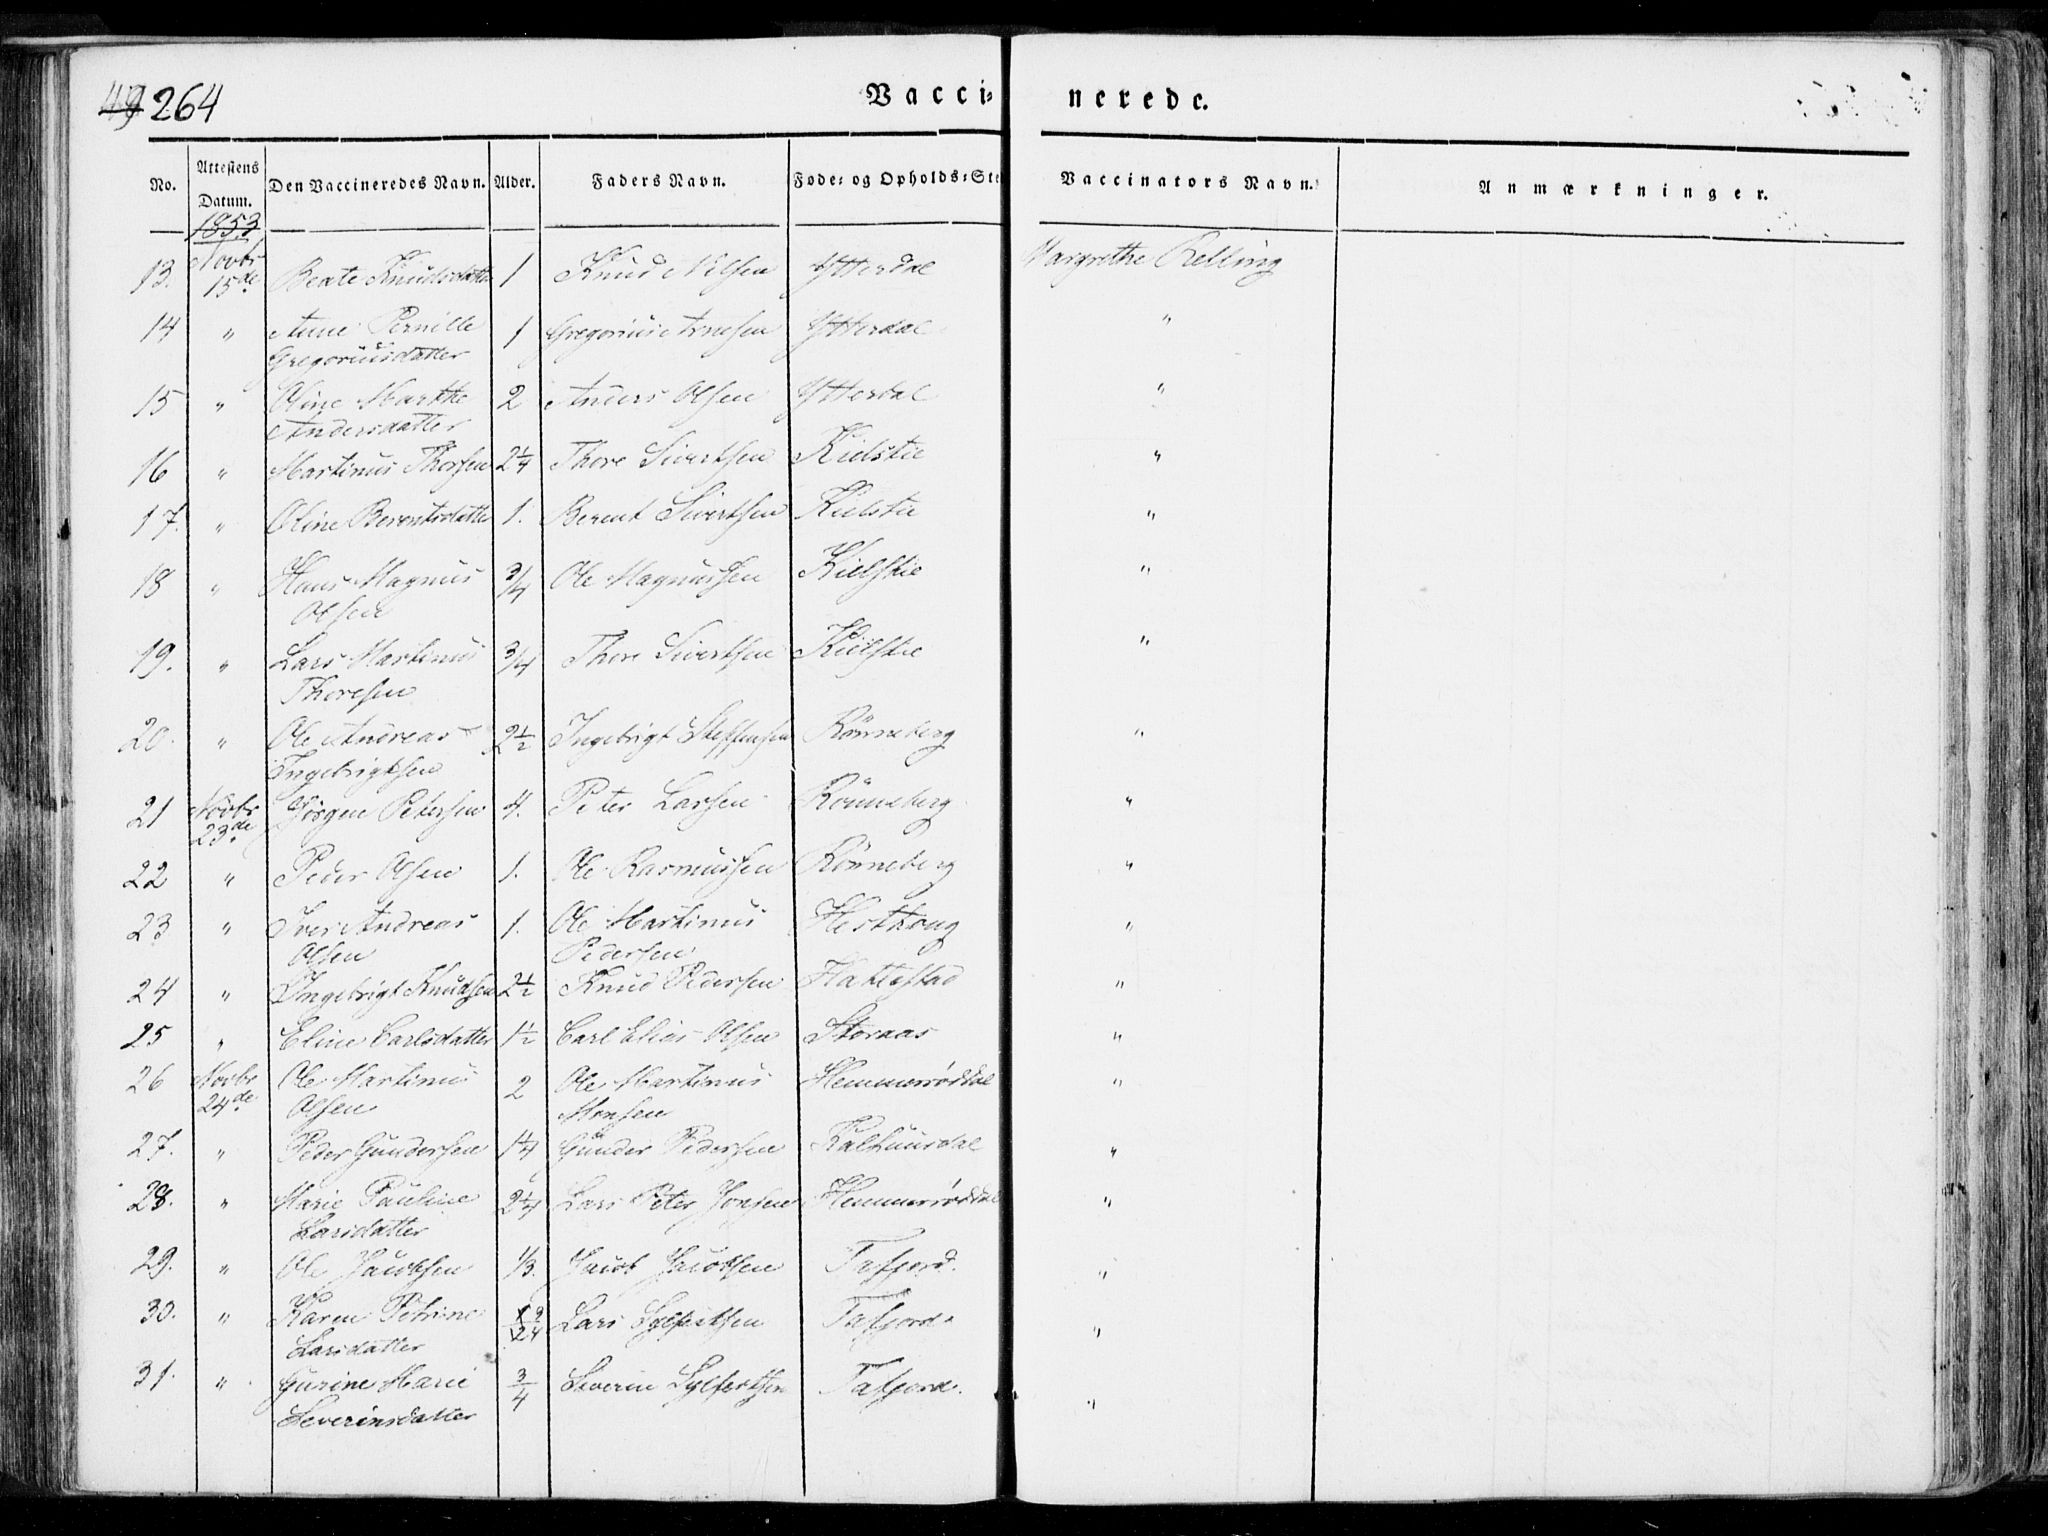 49 264
Vacci- nerede.
No.
Attestens Datum.
Den Vaccineredes Navn.
Alder.
Faders Navn.
Føde- og Opholds-Ste
Vaccinators Navn.
Anmærkninger.
1853
13. Novbr 15de Beate Knudsdatter 1 Knud Nilsen Ytterdal Margrethe Relling
14 " Anne Pernille 1 Gregorius Arnesen Ytterdal "
Gregoriusdatter
15 " Oline Marthe 2 Anders Olsen Ytterdal "
Andersdatter
16 " Martinus Thorsen 2 1/4 Thore Sivertsen Kielstie "
17. " Oline Berentsdatter 1. Berent Sivertsen Kielstie "
18 " Hans Magnus 3/4 Ole Magnussen Kielstie "
Olsen
19. " Lars Martinus 3/4 Thore Sivertsen Kielstie "
Thoresen
20. " Ole Andreas 2 1/2 Ingebrigt Steffensen Rønneberg "
Ingebrigtsen
21 Novbr 23de Jørgen Petersen 4. Peter Larsen Rønneberg "
22 " Peder Olsen 1. Ole Rasmussen Rønneberg "
23 " Iver Andreas 1. Ole Martinus "
Olsen Pedersen
24 " Ingebrigt Knudsen 2 1/2 Knud Pedersen Hattestad "
25 " Eline Carlsdatter 1 1/2 Carl Elias Olsen Storaas "
26 Novbr 24de Ole Martinus 2 Ole Martinus "
Olsen Monsen
27. " Peder Gundersen 1 1/4 Gunder Pedersen Kalhuusdal "
28. " Marie Pauline 2 1/4 Lars Peter Jonsen "
Larsdatter
29. " Ole Jacobsen 1/3. Jacob Jacobsen Tafjord. "
30. " Karen Petrine Lars Sylfestsen Tafjord. "
Larsdatter
31. " Gurine Marie 3/4 Severin Sylfestsen Tafjord. "
Severinsdatter